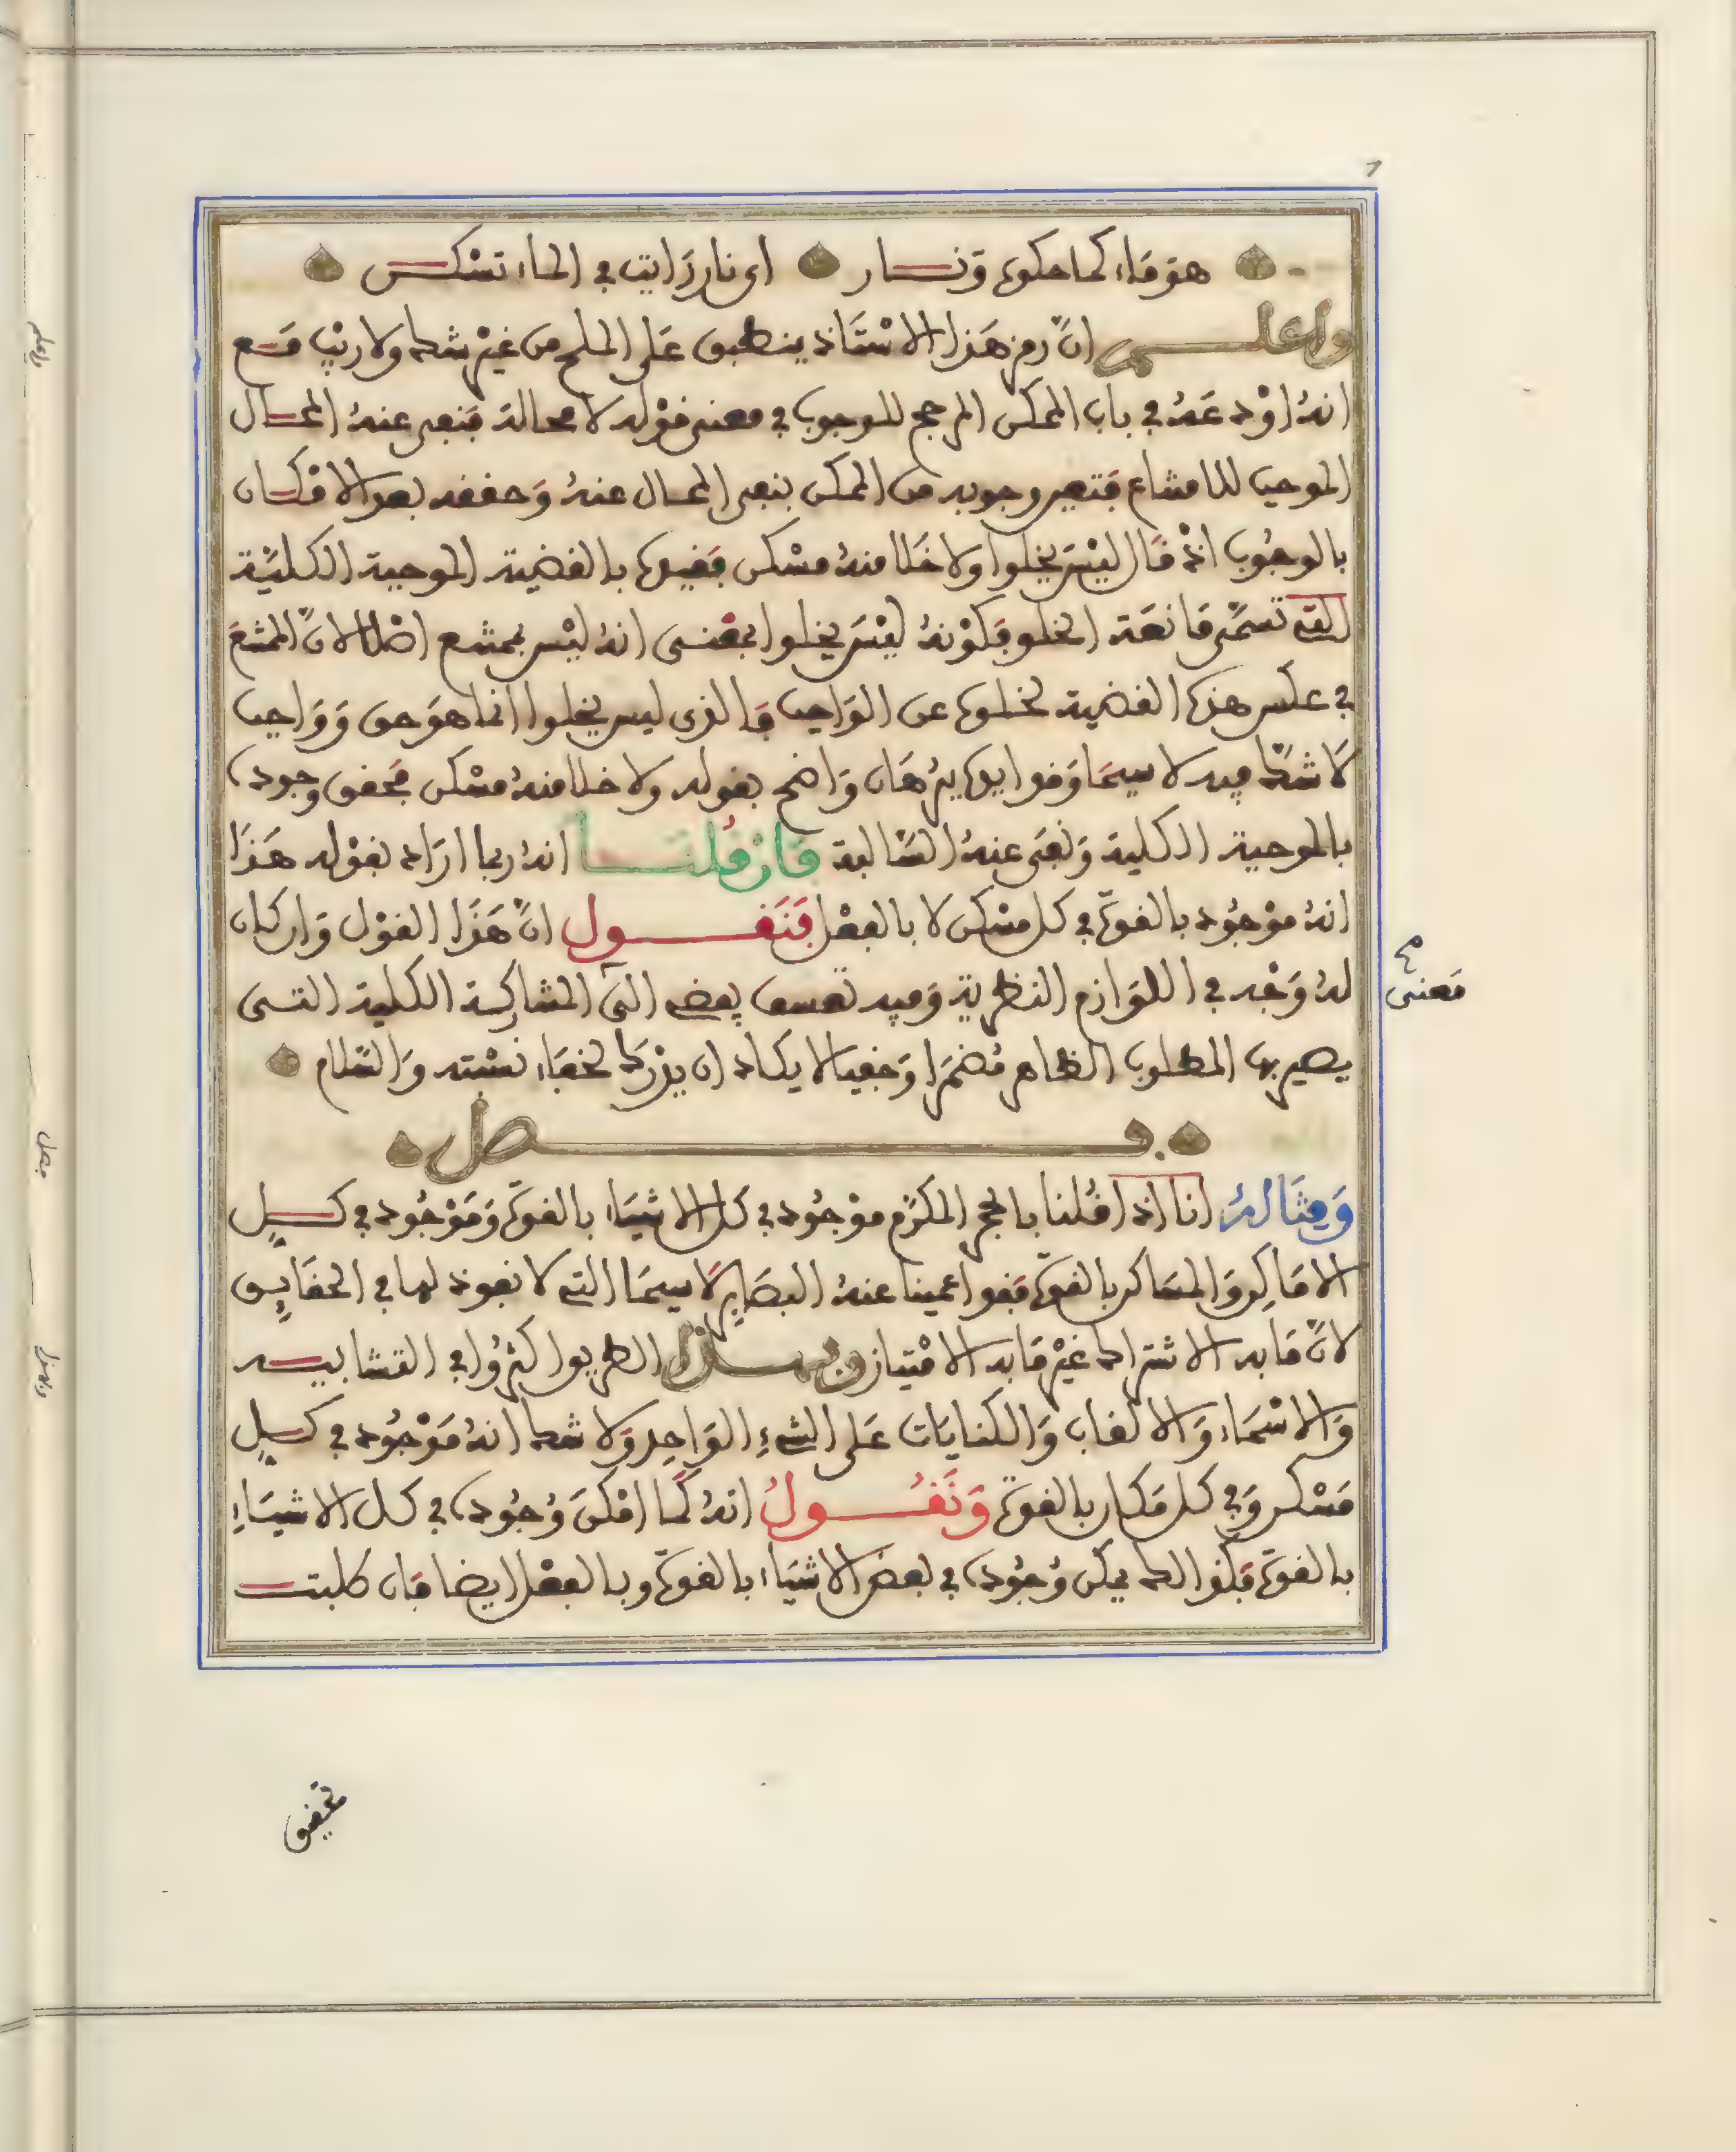 هوَ مَاء كما حكوه وَنــار اى نار رَايت في الماء تسْكــن
واعلــم انّ رمز هَذا الاسْتَاذ ينطبق عَلى الملح من غيْر شك ولا ريْب مَــع
انهُ اوْدعَهُ في باب الممكن المرجح للوجوب في معنى قوْله لا محالة فنفى عنهُ المحــال
الموجب للامتناع فتعين وجوبه من الممكن بنفى المحال عنهُ وَحققه بعد الامْكــان
بالوجُوب اذْ قال ليْسَ يخلوا ولا خَلا منهُ مسْكن فقيده بالقضية الموجبة الكليّة
التي تسَمّى مَانعَة الخلو فكوْنهُ ليْسَ يخلوا بمعْنــى انهُ ليْس بممتنع اصْلا لانّ الممتنع
في عكس هذه القضية لخلوه عن الوَاجب فالذى ليس يخلوا انما هوَ حق وَوَاجب
لاَ شكّ فيه لا سيمَا وَقد ايده ببرْهَان وَاضح بقوله ولا خلا منهُ مسْكن فحقق وجوده
بالموجبة الكلية وَنفى عنهُ السّالبة فان قُلتــا انهُ ربما ارَاد بقوْله هَــذَا
انهُ موْجُود بالقوة في كل مسْكن لا بالفعْل فَنَقــول انّ هَذَا القوْل وَان كان
لهُ وَجْه في اللوَازم النظرية وَفيه تعسف يفضى الى المشاركــة الكلية التــى
يصير بها المطلوب الظاهر مُضمَرا وَخفيا لا يكاد ان يدْرَك لخفَاء نسْبته وَالسّلام
فــصل
وَمِثَالهُ انا اذا قُلنا بالحجر المكرّم موْجُود في كل الاشيَاء بالقوة وَمَوْجُود في كــل
الامَاكِن وَالمسَاكن بالقوة فقد اعمينا عنهُ البصَاير لاَ سيمَا التي لا نفوذ لها في الحقَايــق
لانّ مَا به الاشتراك غيْر مَا به الامْتياز وبهــذا الطريق اكثرُوا في التشابيــه
وَالاسْمَاء وَالالقاب وَالكنايَات عَلى الشيءِ الوَاحِد وَلا شك انهُ مَوْجُود في كــل
مَسْكن وَفي كل مَكان بالقوة وَنَقُــولُ انهُ كمَا امْكنَ وُجُوده في كل الاشيَــاءِ
بالقوة فكذالك يمكن وُجُوده في بعض الاشيَاء بالقوة وبالفعْل ايضا فان طلبتــ
مَعنى
تحقيق
واعلم
فصل
وبهذا